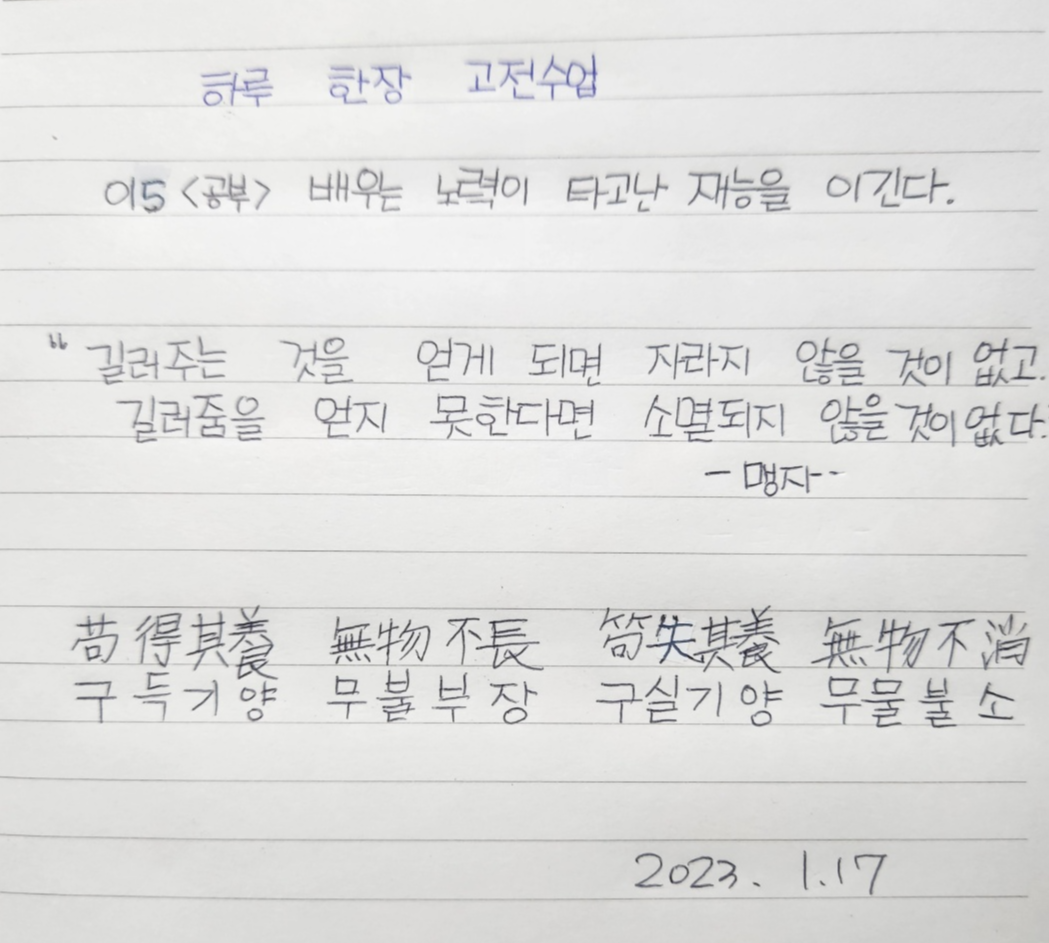 하루 한장 고전수업
015 <공부> 배우는 노력이 타고난 재능을 이긴다.
"길러주는 것을 얻게 되면 자라지 않을 것이 없고.
길러줌을 얻지 못한다면 소멸되지 않을 것이 없다.
- 맹자--
苟得其養 無物不長 笱失其養 無物不消
구득기양 무불부장 구실기양 무물불소
2023. 1.17